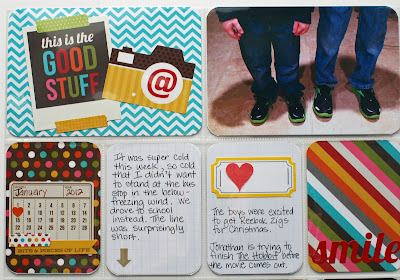 this is the
GOOD
STUFF
@
January 2012
BITS & PIECES OF LIFE
It was super cold
this week, so cold
that I didn't want
to stand at the bus
stop in the below-
freezing wind. We
drove to school
instead. The line
was surprisingly
short.
The boys were excited
to get Reebok Zigs
for Christmas.
Jonathan is trying to
finish The Hobbit before
the movie comes out.
smile